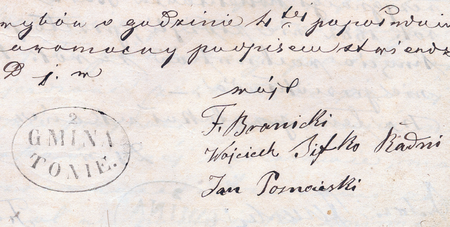 wybór o godzinie 4tej popołudniu
podpisem stwierdz
D j. w
wójt
F. Branicki
Wojciech Sifko Radni
Jan Posnański
2
GMINA
TONIE.